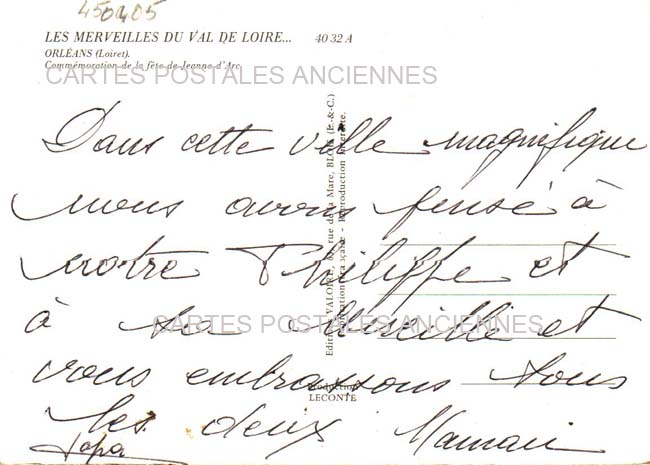 450405
LES MERVEILLES DU VAL DE LOIRE... 40 32 A
ORLÉANS (Loiret).
Commémoration de la fête de Jeanne d'Arc
CARTES POSTALES ANCIENNES
Dans cette ville magnifique
nous avons pensé à
notre Philippe et
à sa famille et
vous embrassons tous
les deux Maman
Papa
CARTES POSTALES ANCIENNES
VALOIRE, rue de la Mare, BLOIS (L.-&-C.)
LECONTE